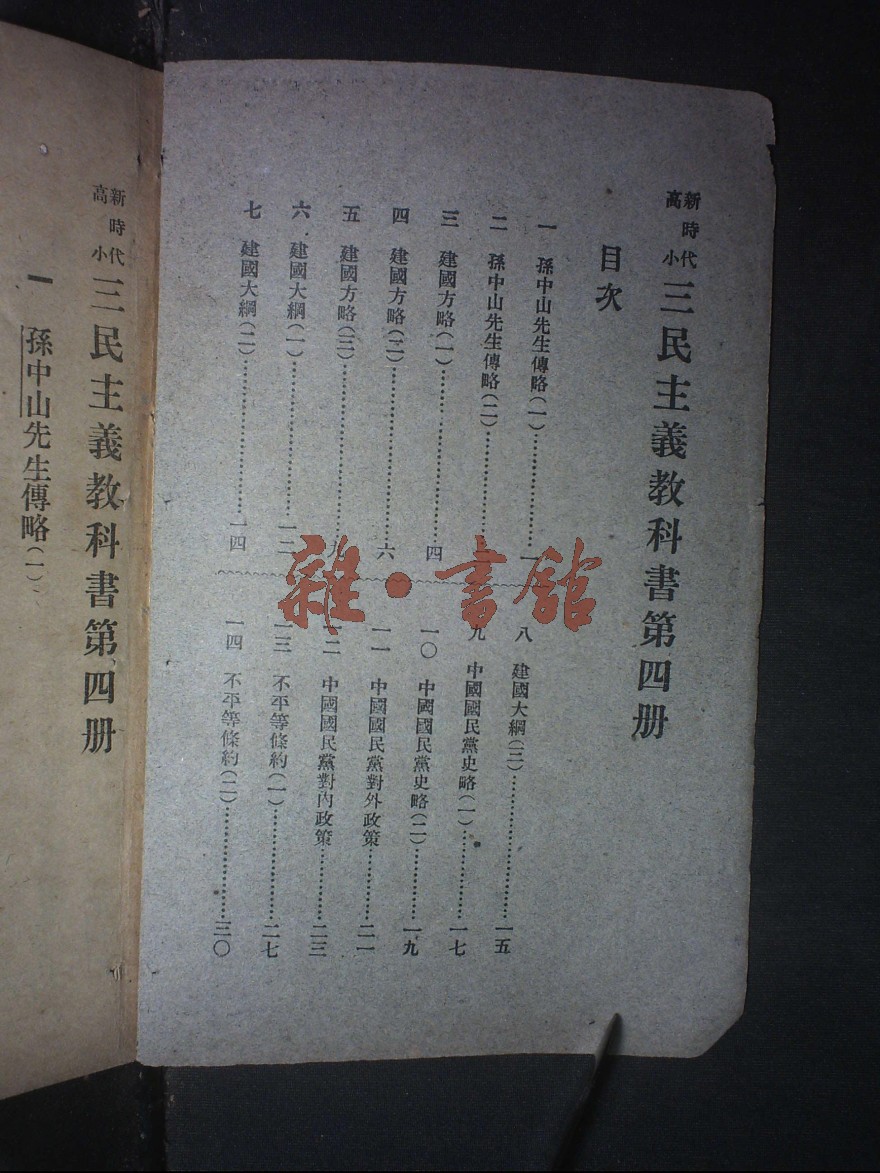 新時代高小 三民主義教科書第四册
目次
一 孫中山先生傳略(一)……一
二 孫中山先生傳略(二)……
三 建國方略(一)……四
四 建國方略(二)……六
五 建國方略(三)……九
六 建國大綱(一)……一二
七 建國大綱(二)……一四
八 建國大綱(三)……一五
九 中國國民黨史略(一)……一七
一〇 中國國民黨史略(二)……一九
一一 中國國民黨對外政策……二一
一二 中國國民黨對內政策……二三
一三 不平等條約(一)……二七
一四 不平等條約(二)……三〇
雜·書館
新時代高小 三民主義教科書第四册
一 孫中山先生傳略(一)